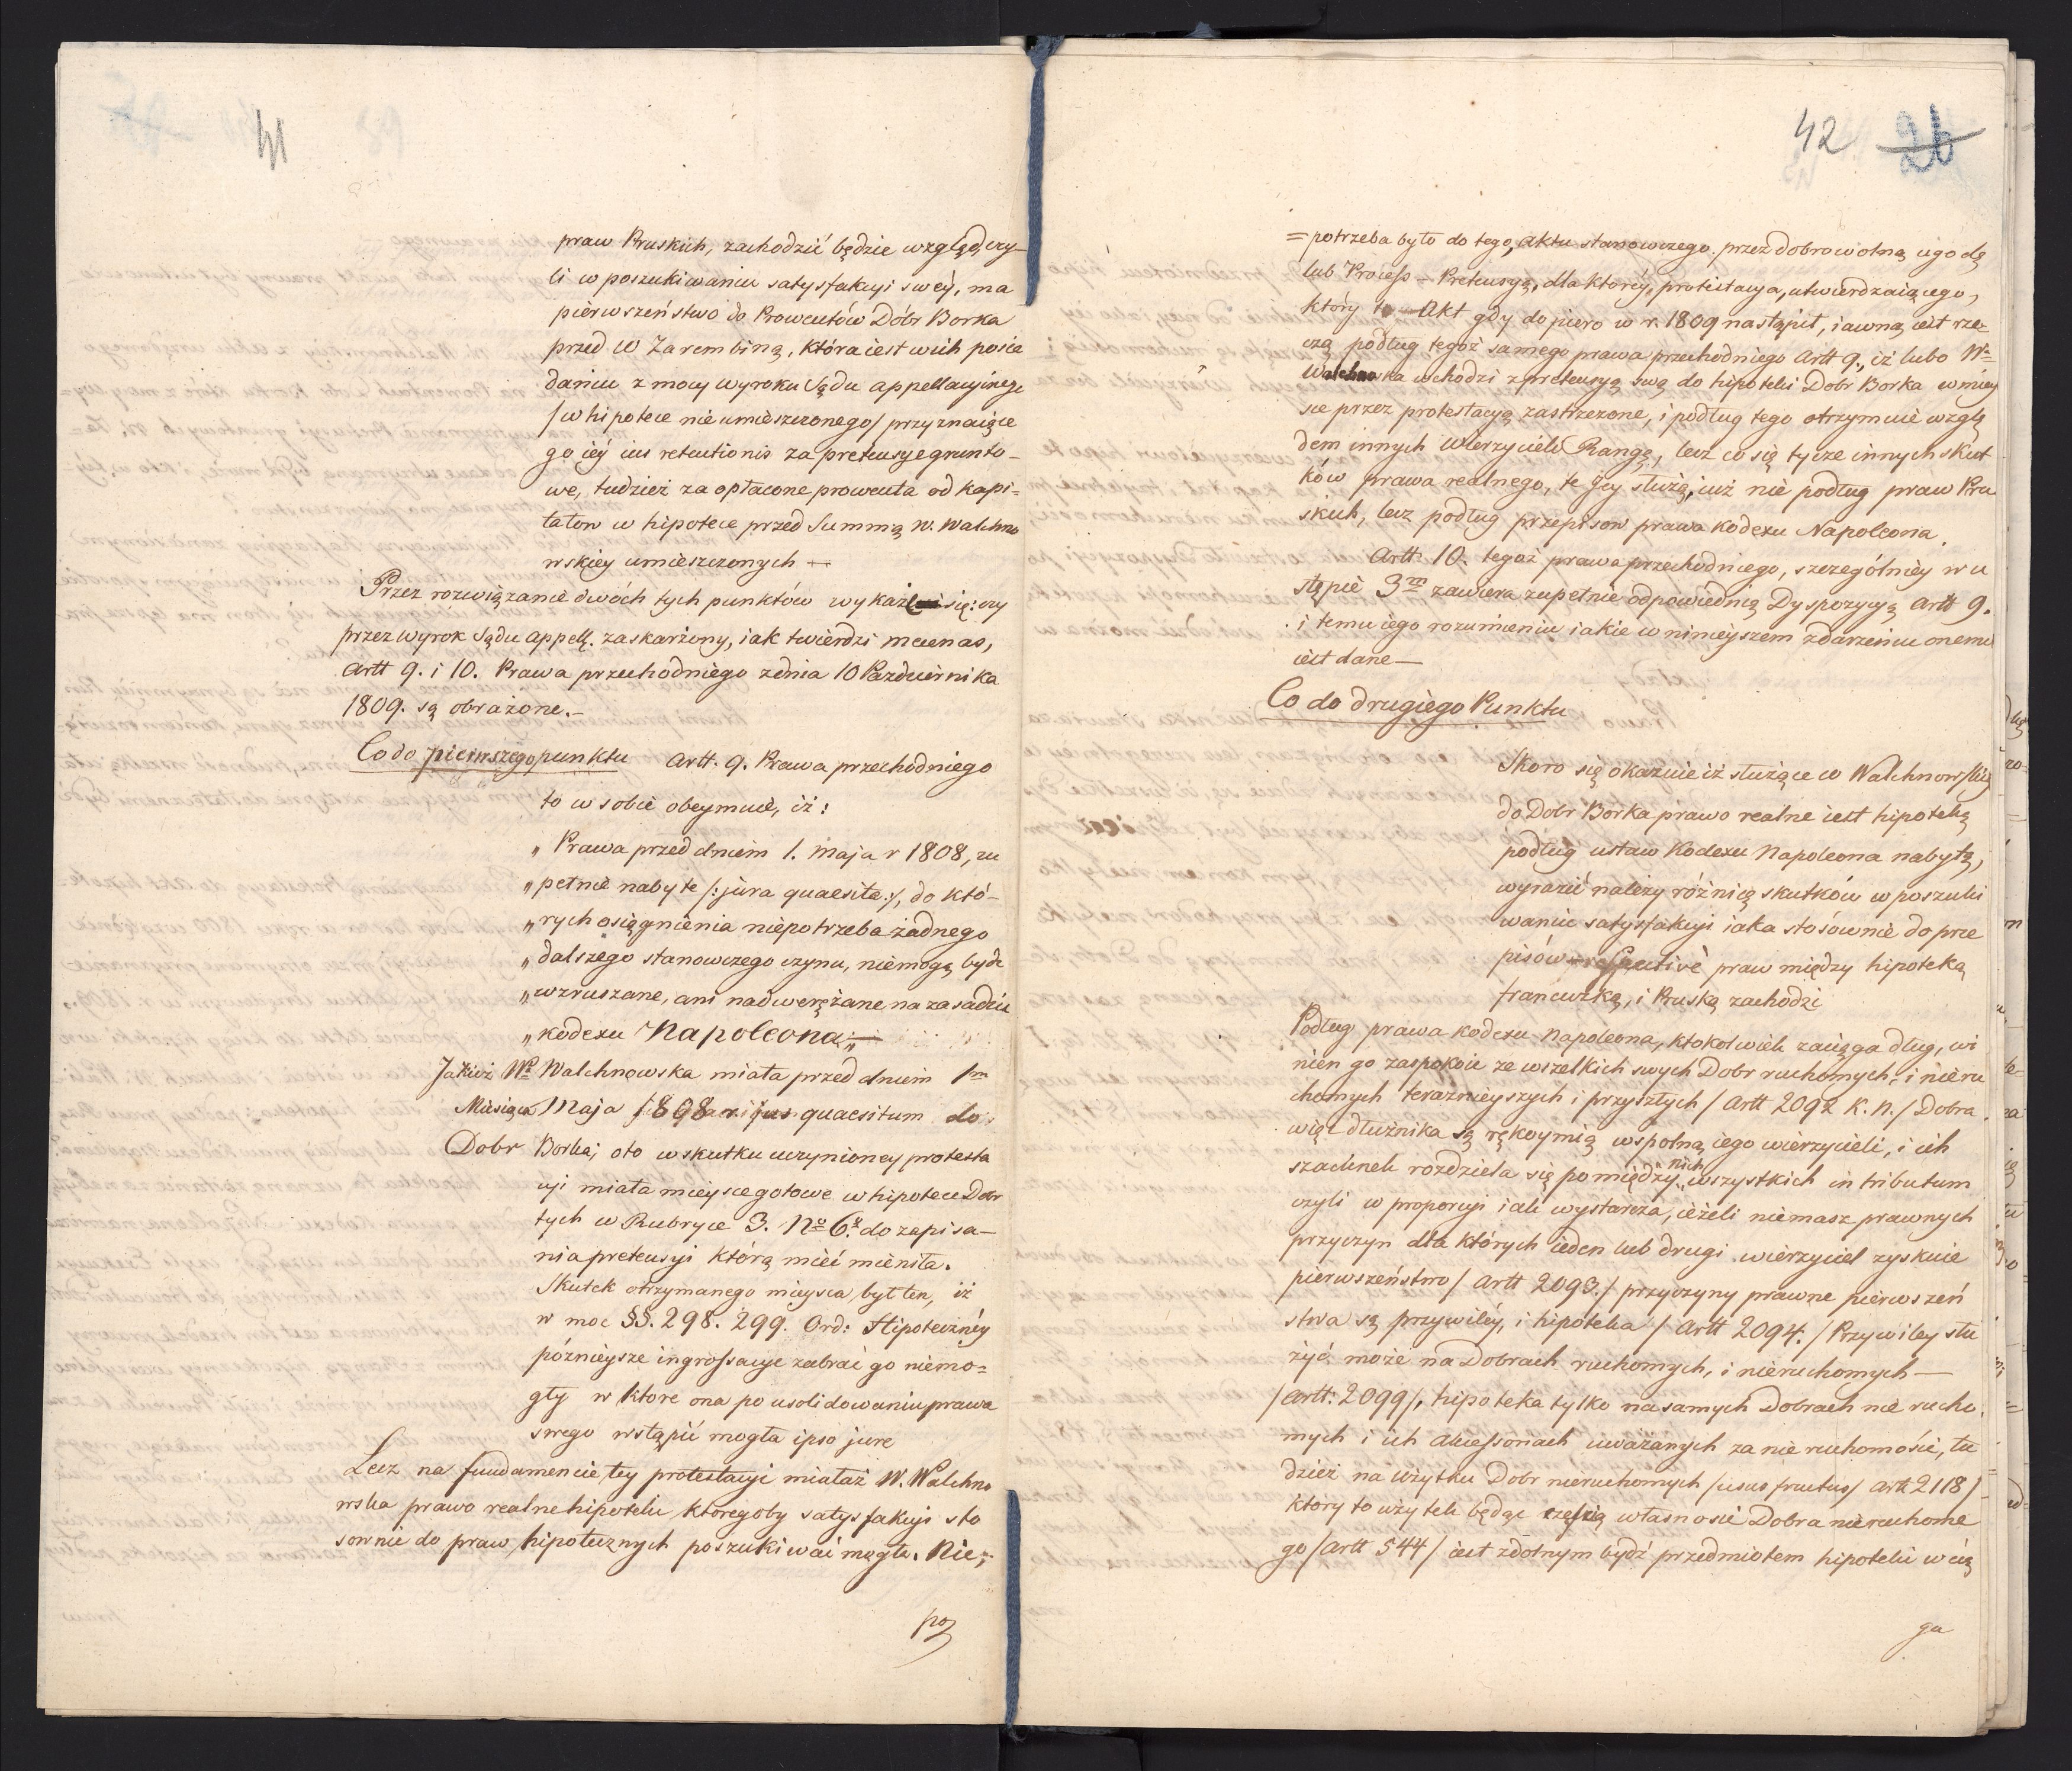 41
praw Pruskich, zachodzić będzie wzgląd czy-
li w poszukiwaniu satysfakcyi swéy, ma
piérwszeństwo do Prowentów Dóbr Borka
przed W Zarembiną, która iest w ich posia
daniu z mocy wyroku Sądu appellacyinego
/w hipotece nie umieszczonego/ przyznaiące
go iéy ius retentionis za pretensye grunto-
we, tudzież za opłacone prowenta od kapi=
tałow w hipotece przed Summą W. Walchno
wskiey umieszczonych —
Przez rozwiązanie dwóch tych punktów wykaże się: czy
przez wyrok Sądu appell. zaskarżony, iak twierdzi mecenas,
Artt 9. i 10. Prawa przechodniego z dnia 10 Pazdziernika
1809. są obrażone.—
Co do pierwszego punktu Artt. 9. Prawa przechodniego
to w sobie obeymuie, iż:
„ Prawa przed dniem 1. Maja r 1808, zu
„ pełnie nabyte /:jura quaesita:/, do któ-
„ rych osiągnienia niepotrzeba żadnego
„ dalszego stanowczego czynu, niemogą bydź
„ wzruszane, ani nadwerężane na zasadzie
„ kodexu Napoleona „—
Jakież Wa Walchnowska miała przed dniem 1m
Miesiąca Maja 1808 r. jus quaesitum do
Dobr Borka; oto w skutku uczynioney protesta
cyi miała mieysce gotowe w hipotece Dobr
tych w Rubryce 3. No 6. do zapisa—
nia pretensyi którą mieć mieniła.
Skutek otrzymanego mieysca, był ten, iż
w moc §§. 298. 299. Ord: Hipoteczney
późnieysze ingrossacye zabrać go niemo=
gły w ktore ona po usolidowaniu prawa
swego wstąpić mogła ipso jure
Lecz na fundamencie tey protestacyi miałaż W. Walchno
wska prawo realne hipoteki ktoregoby satysfakcyi sto
sownie do praw hipotecznych poszukiwać mogła. Nie;
po
42 26
=potrzeba było do tego, aktu stanowczego, przez dobrowolną ugodę
lub Process — Pretensyą, dla któréy, protestacya, utwierdzaiącego,
który to Akt gdy dopiero w r. 1809 nastąpił, iawną iest rze-
czą podług tegoż samego prawa przechodniego Artt 9., iż lubo Wa
Walchnowka wchodzi z pretensyą swą do hipoteki Dobr Borka w miey
sce przez protestacyą zastrzeżone, i podług tego otrzymuie wzglę
dem innych Wierzycieli Rangę, lecz co się tycze innych skut
ków prawa realnego, te Jey służą, iuż nie podług praw Pru
skich, lecz podług przepisow prawa kodexu Napoleona.
Artt. 10. tegoż prawa przechodniego, szczególniéy w u
stępie 3m zawiera zupełnie odpowiednią Dyspozycyą Artt 9.
i temu iego rozumieniu iakie w ninieyszem zdarzeniu onemu
iest dane —
Co do drugiego Punktu
Skoro się okazuie iż służące W Walchnowskiey
do Dobr Borka prawo realne iest hipoteką
podług ustaw Kodexu Napoleona nabytą,
wyrazić należy różnicę skutków w poszuki
waniu satysfakcyi iaka stosównie do prze
pisów respective praw między hipoteką
francuzką, i Pruską zachodzi
Podług prawa kodexu Napoleona, ktokolwiek zaciąga dług, wi
nien go zaspokoić ze wszelkich swych Dobr ruchomych, i nieru
chomych teraznieyszych i przyszłych / Artt 2092 K. N. / Dobra
więc dłużnika są rękoymią wspolną iego wierzycieli, i ich
szacunek rozdziela się pomiędzy nich wszystkich in tributum
czyli w proporcyi iak wystarcza, ieżeli niemasz prawnych
przyczyn dla których ieden lub drugi wierzyciel zyskuie
pierwszeństwo / Artt 2093./ przyczyny prawne pierwszeń
stwa są przywiléy, i hipoteka / Artt 2094. / Przywiley słu
żyć może na Dobrach ruchomych, i nieruchomych —
/Artt: 2099/, hipoteka tylko na samych Dobrach nie rucho
mych i ich Akcessoriach uważanych za nie ruchomości, tu
dzież na użytku Dobr nieruchomych /usus fructus/ Artt 2118/
który to użytek będąc częścią własności Dobra nieruchome
go /Artt 544/ iest zdolnym bydź przedmiotem hipoteki w cią
gu